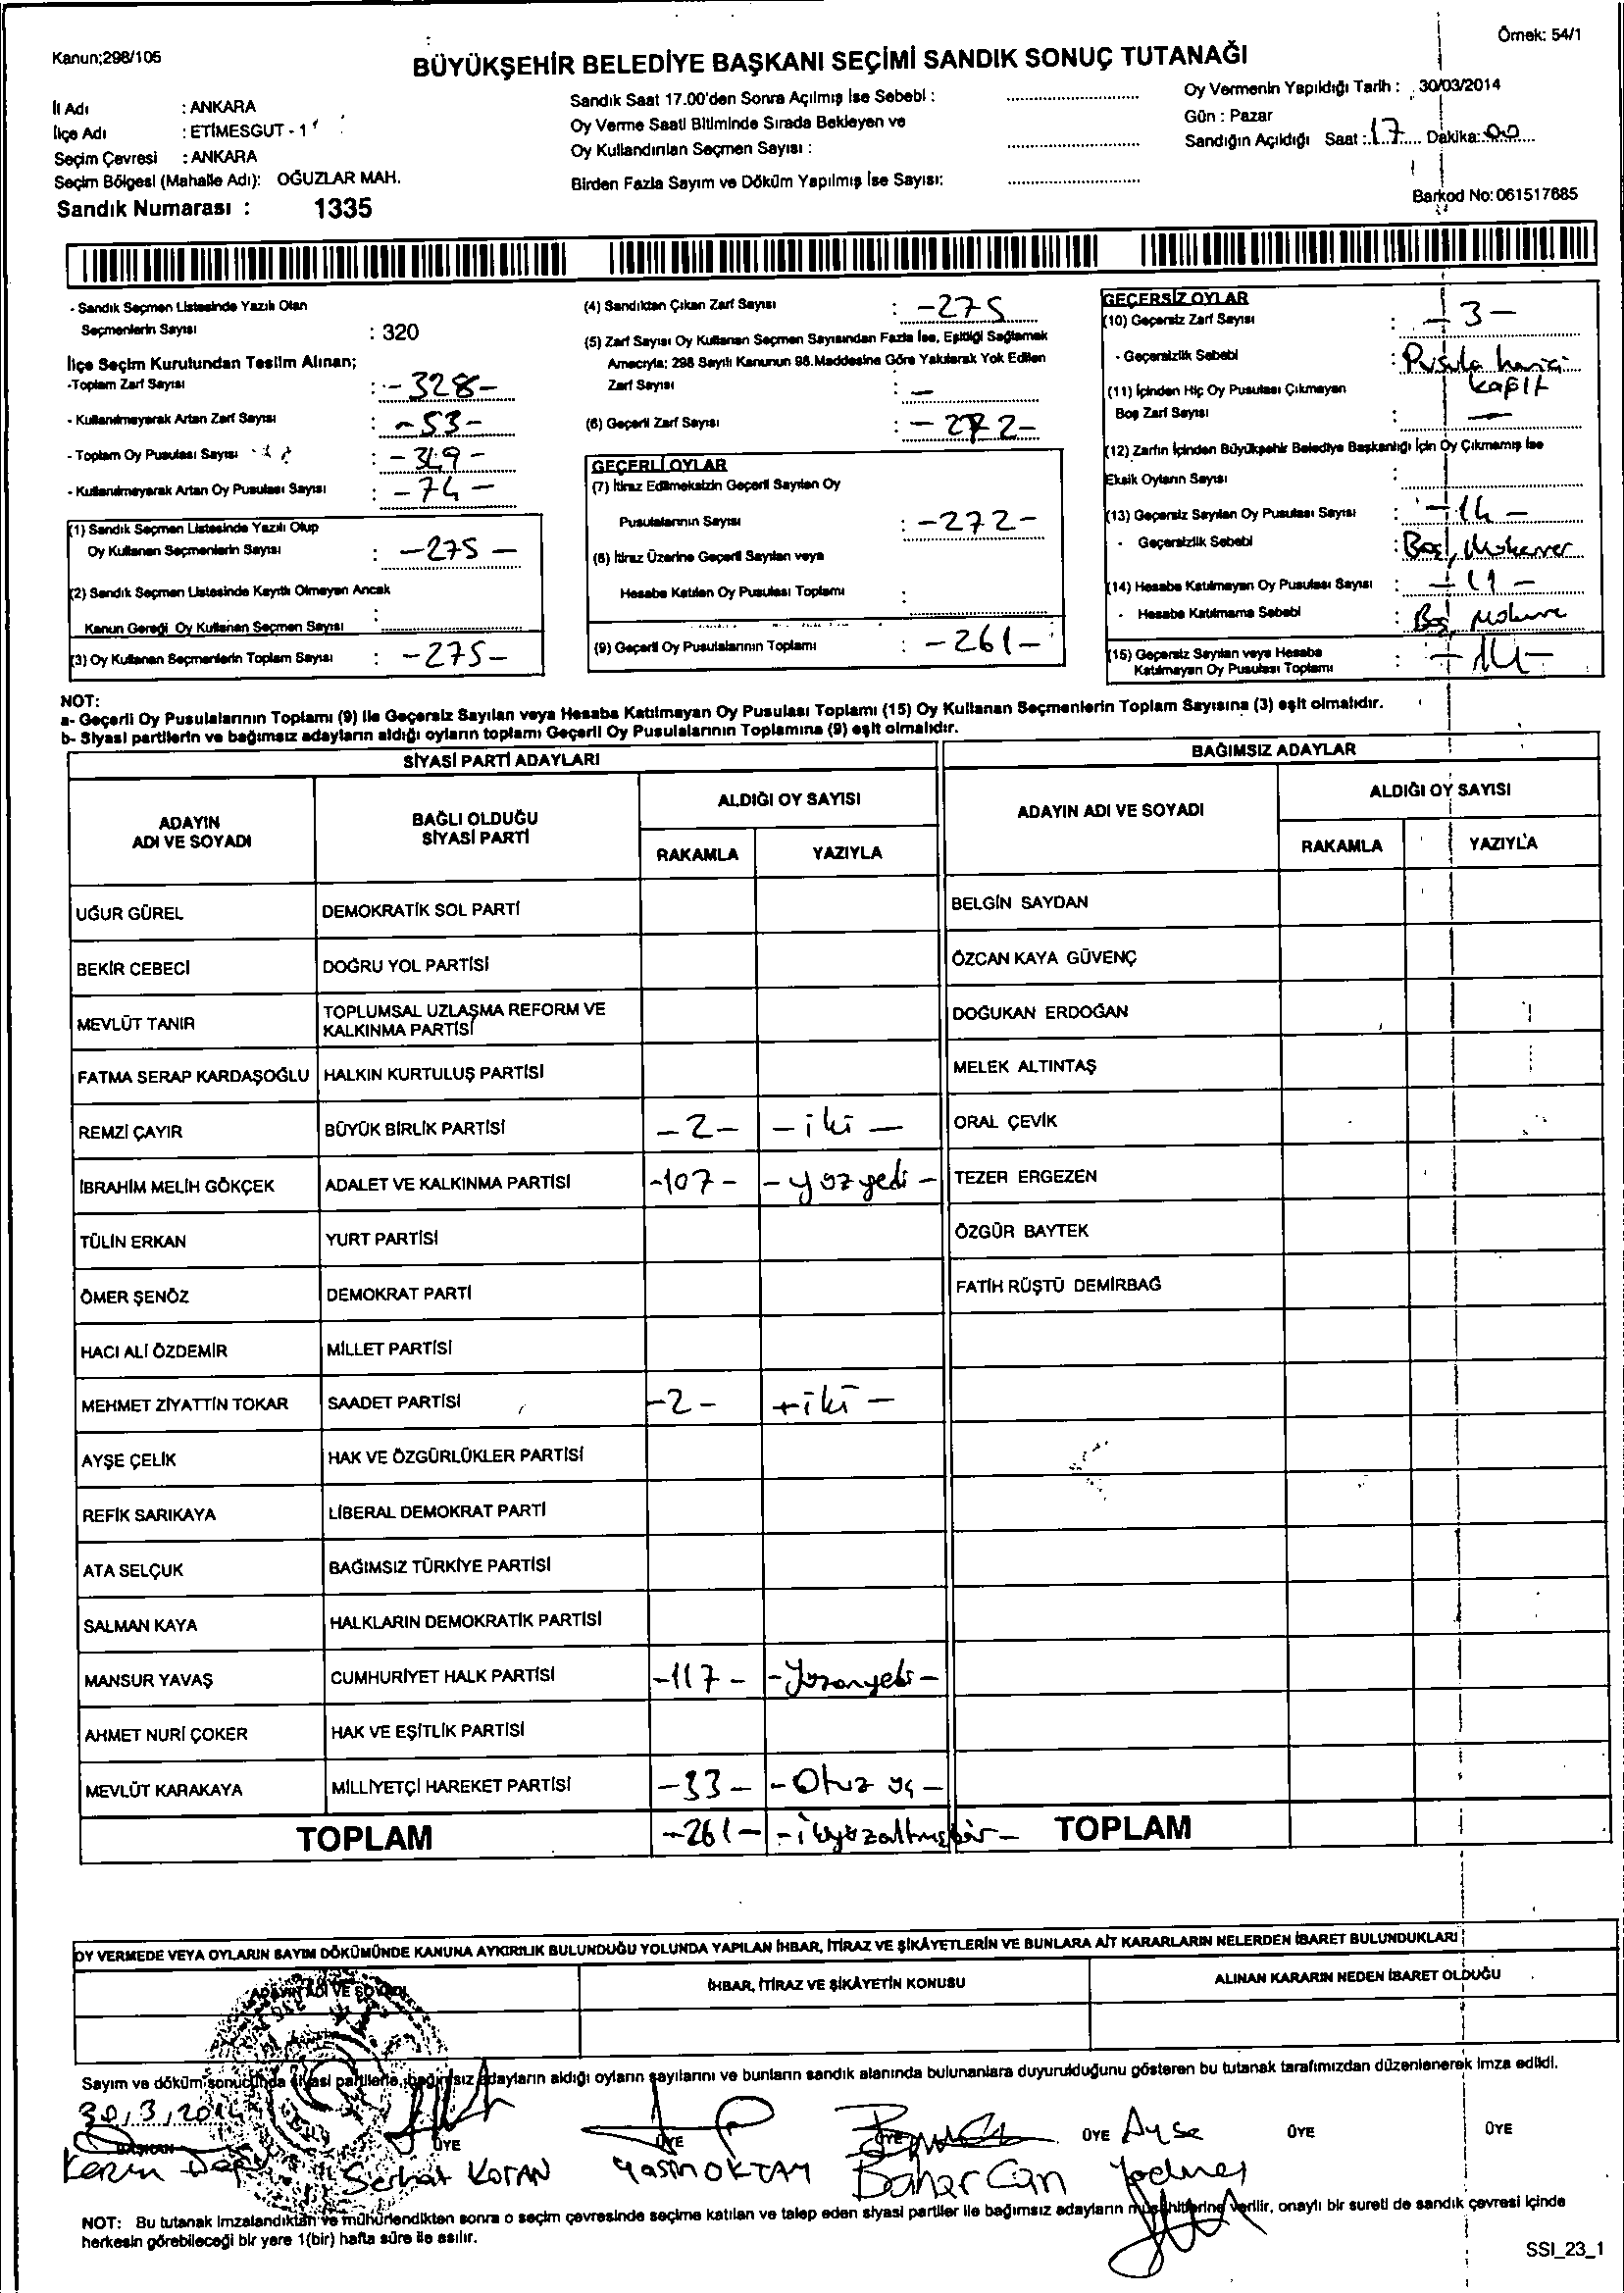 Kanun;298/105
Örnek: 54/1
BÜYÜKŞEHİR BELEDİYE BAŞKANI SEÇİMİ SANDIK SONUÇ TUTANAĞI
İl Adı : ANKARA
İlçe Adı : ETİMESGUT - 1
Seçim Çevresi : ANKARA
Seçim Bölgesi (Mahalle Adı): OĞUZLAR MAH.
Sandık Numarası : 1335
Sandık Saat 17.00'den Sonra Açılmış İse Sebebi :
Oy Verme Saati Bitiminde Sırada Bekleyen ve
Oy Kullandırılan Seçmen Sayısı :
Birden Fazla Sayım ve Döküm Yapılmış İse Sayısı:
Oy Vermenin Yapıldığı Tarih : 30/03/2014
Gün : Pazar
Sandığın Açıldığı Saat : 17 Dakika: 00
Barkod No: 061517685
- Sandık Seçmen Listesinde Yazılı Olan
Seçmenlerin Sayısı : 320
İlçe Seçim Kurulundan Teslim Alınan;
-Toplam Zarf Sayısı : -328-
- Kullanılmayarak Artan Zarf Sayısı : -53-
- Toplam Oy Pusulası Sayısı : -349-
- Kullanılmayarak Artan Oy Pusulası Sayısı : -74-
(1) Sandık Seçmen Listesinde Yazılı Olup
Oy Kullanan Seçmenlerin Sayısı : -275-
(2) Sandık Seçmen Listesinde Kayıtlı Olmayan Ancak
Kanun Gereği Oy Kullanan Seçmen Sayısı :
(3) Oy Kullanan Seçmenlerin Toplam Sayısı : -275-
(4) Sandıktan Çıkan Zarf Sayısı : -275
(5) Zarf Sayısı Oy Kullanan Seçmen Sayısından Fazla İse, Eşitliği Sağlamak
Amacıyla; 298 Sayılı Kanunun 98.Maddesine Göre Yakılarak Yok Edilen
Zarf Sayısı : -
(6) Geçerli Zarf Sayısı : -272-
GEÇERLİ OYLAR
(7) İtiraz Edilmeksizin Geçerli Sayılan Oy
Pusulalarının Sayısı : -272-
(8) İtiraz Üzerine Geçerli Sayılan veya
Hesaba Katılan Oy Pusulası Toplamı :
(9) Geçerli Oy Pusulalarının Toplamı : -261-
GEÇERSİZ OYLAR
(10) Geçersiz Zarf Sayısı : -3-
- Geçersizlik Sebebi : Pusula harici
kağıt
(11) İçinden Hiç Oy Pusulası Çıkmayan
Boş Zarf Sayısı : -
(12) Zarfın İçinden Büyükşehir Belediye Başkanlığı İçin Oy Çıkmamış İse
Eksik Oyların Sayısı :
(13) Geçersiz Sayılan Oy Pusulası Sayısı : -14-
- Geçersizlik Sebebi : Boş,
(14) Hesaba Katılmayan Oy Pusulası Sayısı : -11-
- Hesaba Katılmama Sebebi : Boş,
(15) Geçersiz Sayılan veya Hesaba
Katılmayan Oy Pusulası Toplamı : -14-
NOT:
a- Geçerli Oy Pusulalarının Toplamı (9) ile Geçersiz Sayılan veya Hesaba Katılmayan Oy Pusulası Toplamı (15) Oy Kullanan Seçmenlerin Toplam Sayısına (3) eşit olmalıdır.
b- Siyasi partilerin ve bağımsız adayların aldığı oyların toplamı Geçerli Oy Pusulalarının Toplamına (9) eşit olmalıdır.
SİYASİ PARTİ ADAYLARI
BAĞIMSIZ ADAYLAR
ADAYIN
ADI VE SOYADI
BAĞLI OLDUĞU
SİYASİ PARTİ
ALDIĞI OY SAYISI
RAKAMLA YAZIYLA
ADAYIN ADI VE SOYADI
ALDIĞI OY SAYISI
RAKAMLA YAZIYLA
UĞUR GÜREL DEMOKRATİK SOL PARTİ BELGİN SAYDAN
BEKİR CEBECİ DOĞRU YOL PARTİSİ ÖZCAN KAYA GÜVENÇ
MEVLÜT TANIR TOPLUMSAL UZLAŞMA REFORM VE KALKINMA PARTİSİ DOĞUKAN ERDOĞAN
FATMA SERAP KARDAŞOĞLU HALKIN KURTULUŞ PARTİSİ MELEK ALTINTAŞ
REMZİ ÇAYIR BÜYÜK BİRLİK PARTİSİ -2- -iki- ORAL ÇEVİK
İBRAHİM MELİH GÖKÇEK ADALET VE KALKINMA PARTİSİ -107- -yüzyedi- TEZER ERGEZEN
TÜLİN ERKAN YURT PARTİSİ ÖZGÜR BAYTEK
ÖMER ŞENÖZ DEMOKRAT PARTİ FATİH RÜŞTÜ DEMİRBAĞ
HACI ALİ ÖZDEMİR MİLLET PARTİSİ
MEHMET ZİYATTİN TOKAR SAADET PARTİSİ -2- -iki-
AYŞE ÇELİK HAK VE ÖZGÜRLÜKLER PARTİSİ
REFİK SARIKAYA LİBERAL DEMOKRAT PARTİ
ATA SELÇUK BAĞIMSIZ TÜRKİYE PARTİSİ
SALMAN KAYA HALKLARIN DEMOKRATİK PARTİSİ
MANSUR YAVAŞ CUMHURİYET HALK PARTİSİ -117- -Yüzonyedi-
AHMET NURİ ÇOKER HAK VE EŞİTLİK PARTİSİ
MEVLÜT KARAKAYA MİLLİYETÇİ HAREKET PARTİSİ -33- -Otuz üç-
TOPLAM -261- -ikiyüzaltmışbir- TOPLAM
OY VERMEDE VEYA OYLARIN SAYIM DÖKÜMÜNDE KANUNA AYKIRILIK BULUNDUĞU YOLUNDA YAPILAN İHBAR, İTİRAZ VE ŞİKÂYETLERİN VE BUNLARA AİT KARARLARIN NELERDEN İBARET BULUNDUKLARI
ADAYIN ADI VE SOYADI İHBAR, İTİRAZ VE ŞİKÂYETİN KONUSU ALINAN KARARIN NEDEN İBARET OLDUĞU
Sayım ve döküm sonucunda siyasi partilerle, bağımsız adayların aldığı oyların sayılarını ve bunların sandık alanında bulunanlara duyurulduğunu gösteren bu tutanak tarafımızdan düzenlenerek imza edildi.
30/3/2014
BAŞKAN ÜYE ÜYE ÜYE ÜYE Ayşe ÜYE ÜYE
Serhat KOTAN Yasin OKTAY Bahar Can
NOT: Bu tutanak imzalandıktan ve mühürlendikten sonra o seçim çevresinde seçime katılan ve talep eden siyasi partiler ile bağımsız adayların müşahitlerine verilir, onaylı bir sureti de sandık çevresi içinde
herkesin görebileceği bir yere 1(bir) hafta süre ile asılır.
SSI_23_1